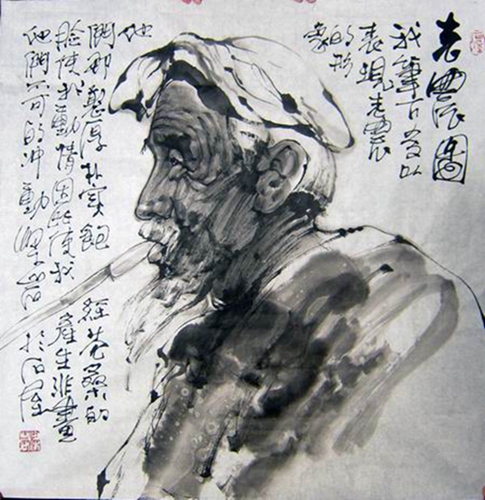 老農图
我筆下多以
表現老農
的形
象
他
們那憨厚朴实飽經苍桑的
臉使我動情因此使我產生非畫
他們不可的冲動